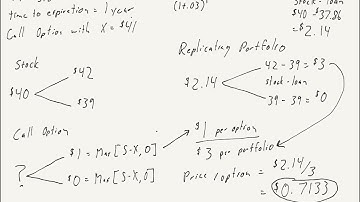 time to expiration = 1 year
Call Option with X = $41
(1+.03)¹
Stock - loan
$40 - 37.86
= $2.14
Stock
$40
$42
$39
Replicating Portfolio
$2.14
42 - 39 = $3
Stock - loan
39 - 39 = $0
Call Option
?
$1 = Max[S-X,0]
$0 = Max[S-X,0]
$1 per option
$3 per portfolio
Price/option = $2.14/3
= $0.7133